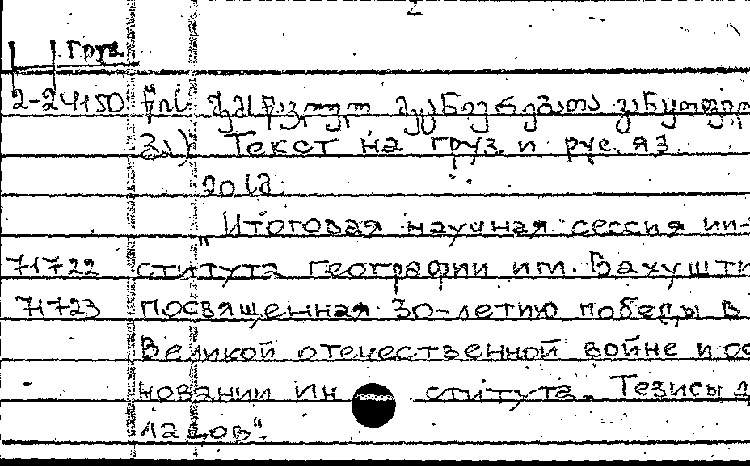 Груз.
2-24150
Текст на груз. и рус. яз.
"Итоговая научная сессия ин-
71722 ститута географии им. Вахушти
71723 посвященная 30-летию победы в
Великой отечественной войне и ос
новании Ин ститута. Тезисы д
ладов".